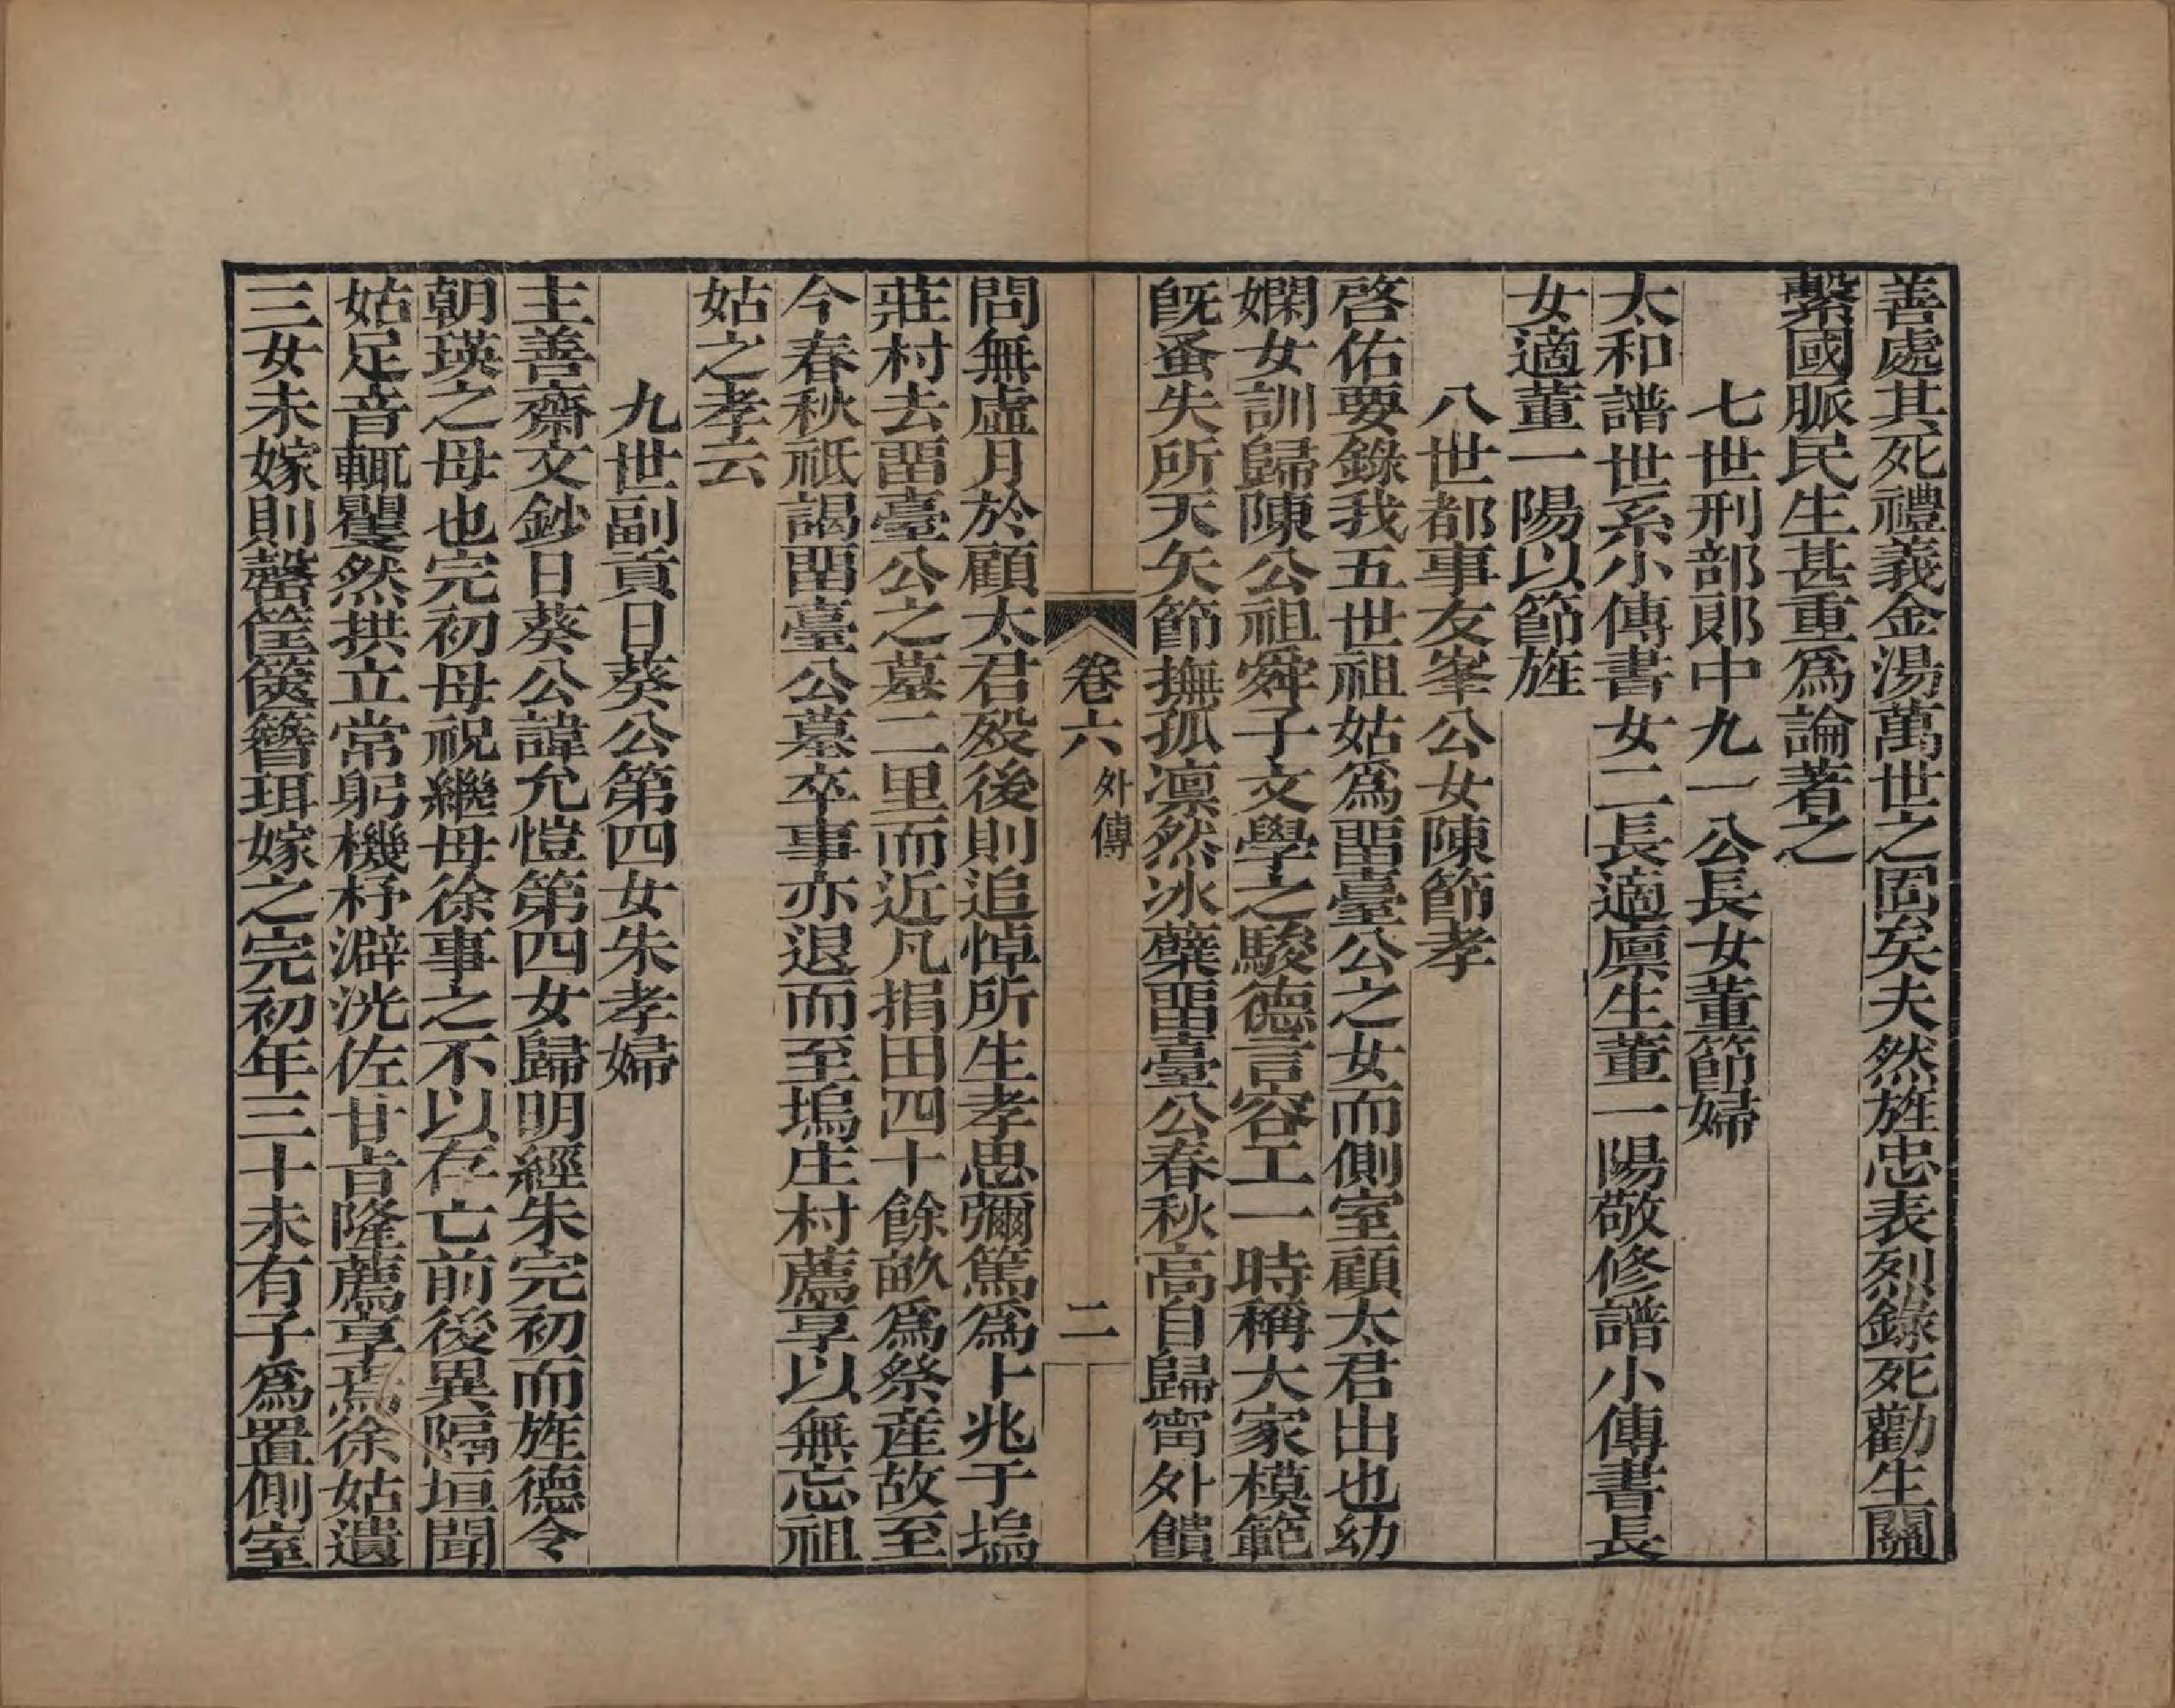 善處其死禮義金湯萬世之固矣夫然旌忠表烈錄死勸生關
繫國脈民生甚重爲論著之
七世刑部郎中九一公長女董節婦
太和譜世系小傳書女二長適廪生董一陽敬修譜小傳書長
女適董一陽以節旌
八世都事友峯公女陳節孝
啓佑要錄我五世祖姑爲畱臺公之女而側室顧太君出也幼
嫻女訓歸陳公祖舜子文學之駿德言容工一時稱大家模範
旣蚤失所天矢節撫孤凛然冰蘗畱臺公春秋高自歸甯外饋
卷六 外傳 二
問無虛月於顧太君歿後則追悼所生孝思彌篤爲卜兆于塢
莊村去畱臺公之墓二里而近凡捐田四十餘畝爲祭産故至
今春秋祇謁畱臺公墓卒事亦退而至塢庄村薦享以無忘祖
姑之孝云
九世副貢日葵公第四女朱孝婦
主善齋文鈔日葵公諱允愷第四女歸明經朱完初而旌德令
朝瑛之母也完初母祝繼母徐事之不以存亡前後異隔垣聞
姑足音輒瞿然拱立常躬機杼澼洸佐甘旨隆薦享焉徐姑遺
三女未嫁則罄筐篋簪珥嫁之完初年三十未有子爲置側室